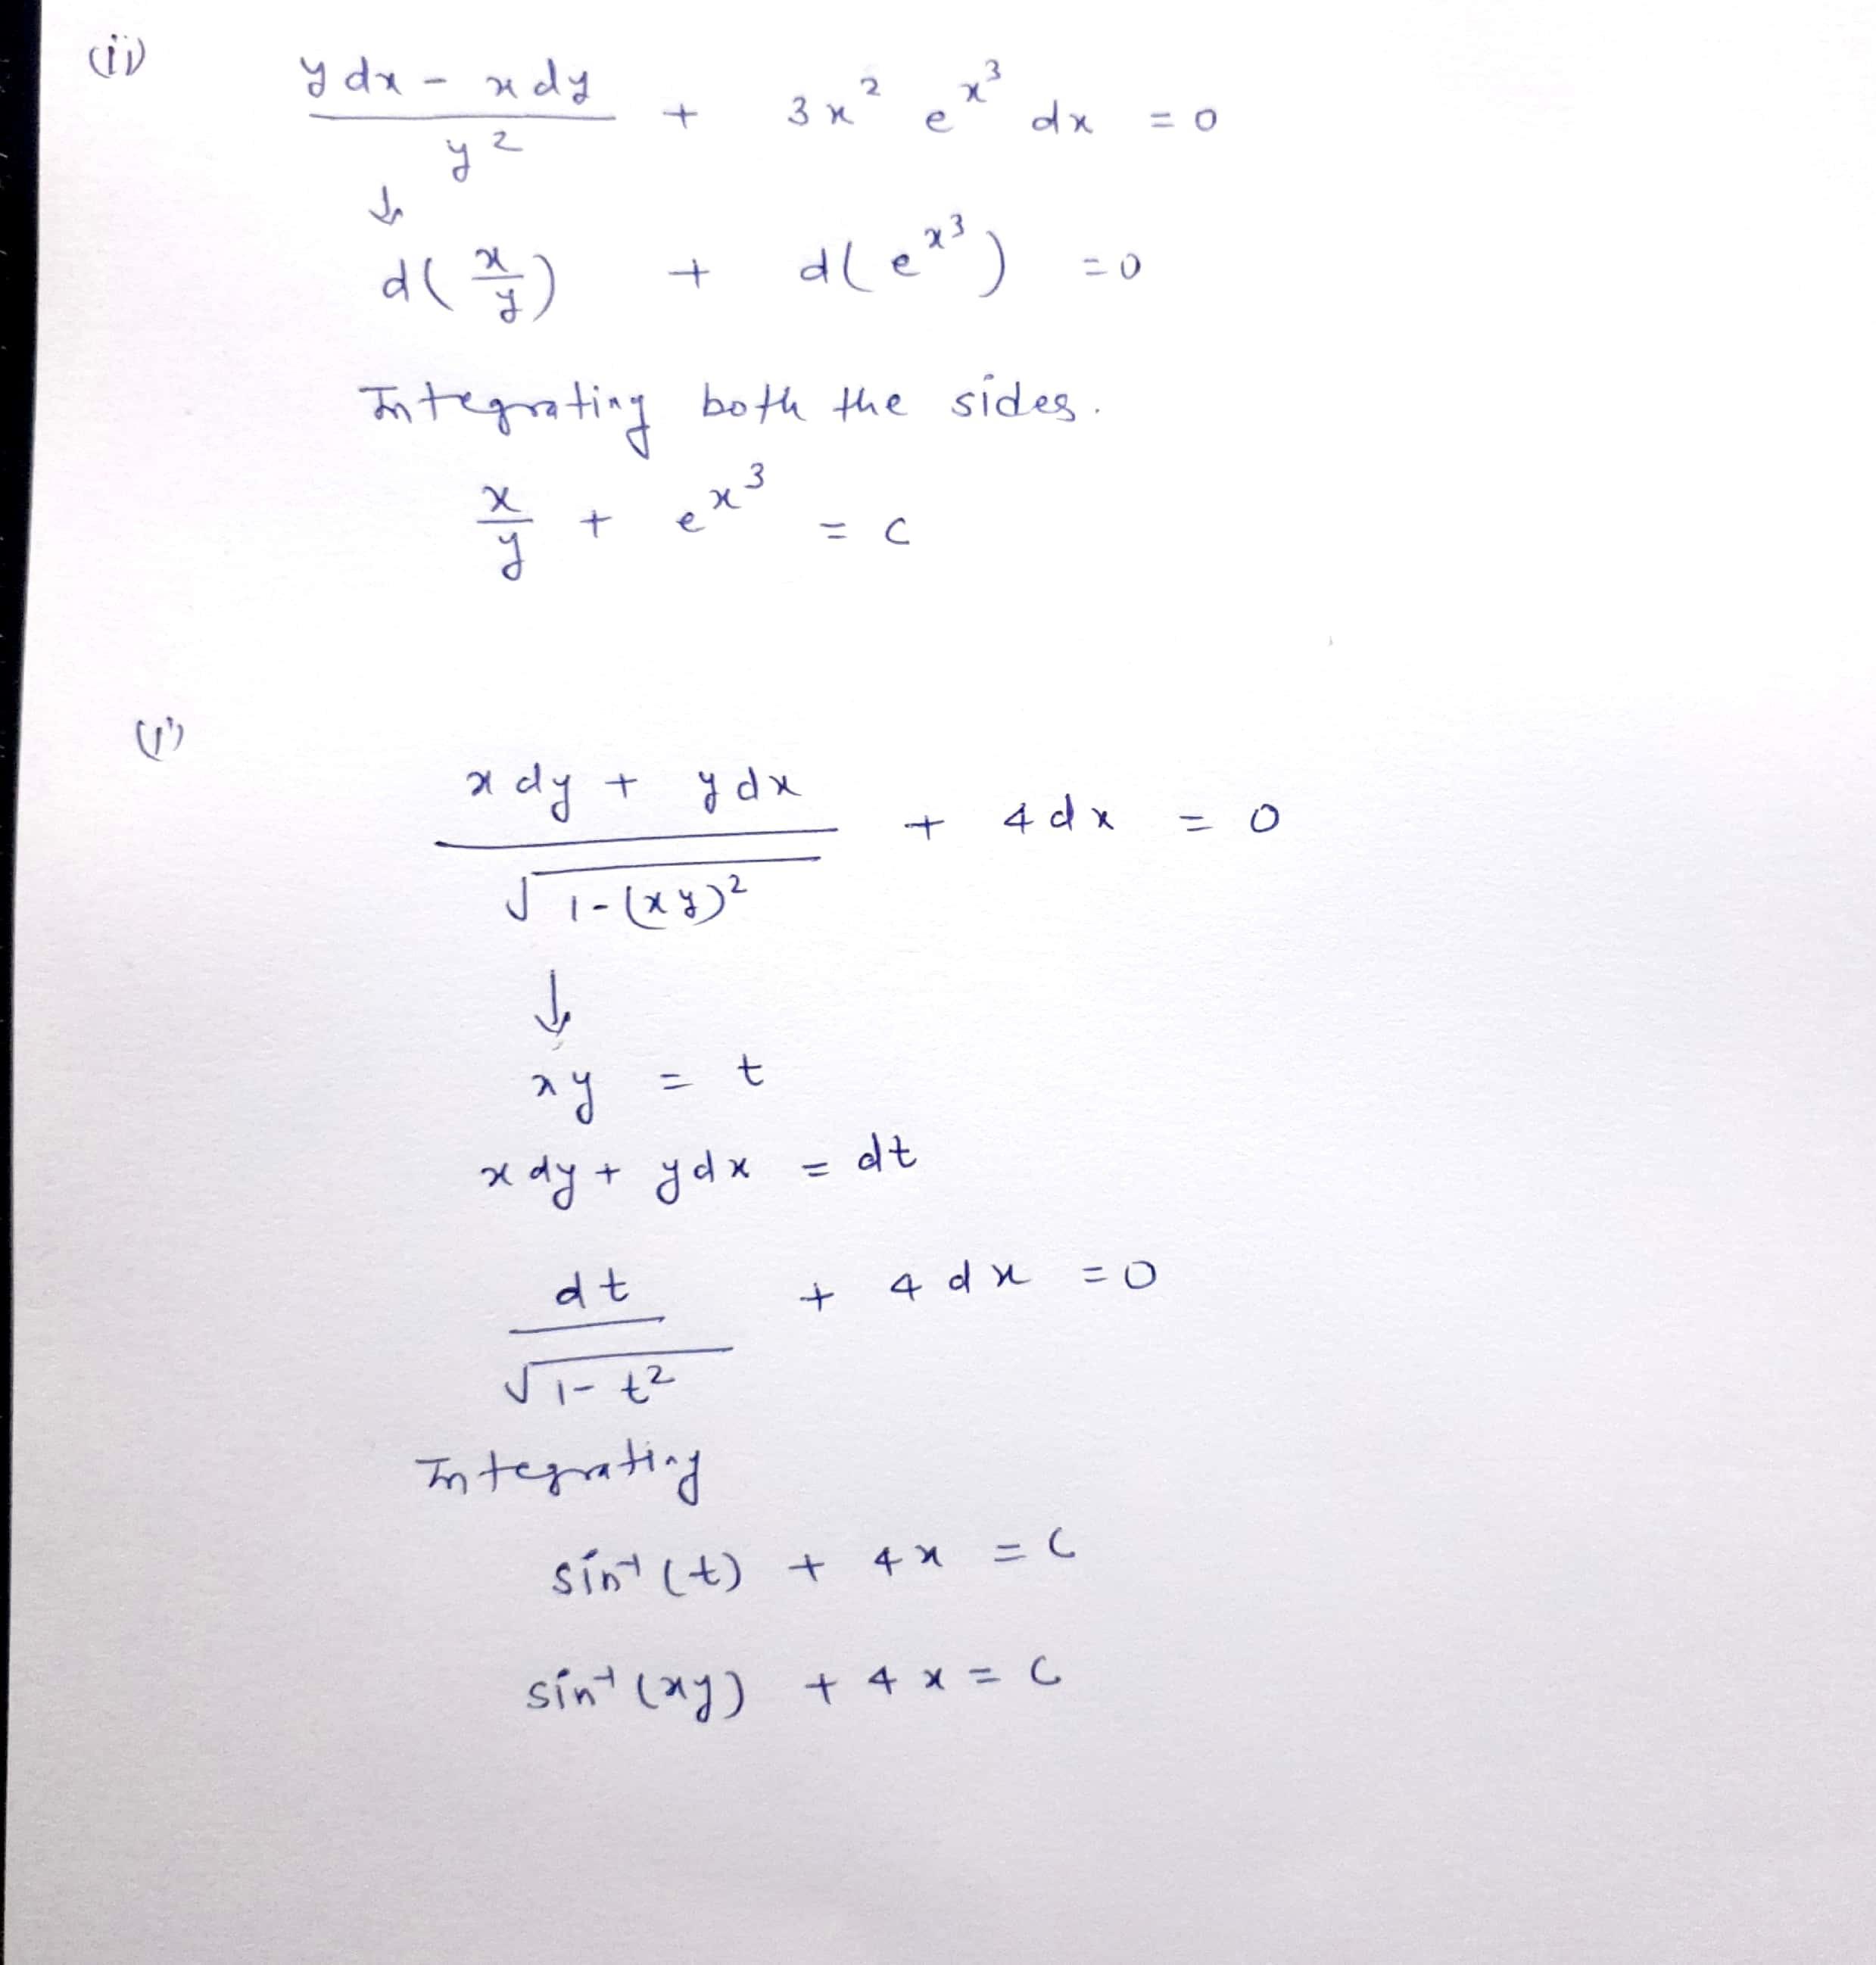 (ii) (y dx - x dy)/y² + 3x² e^x³ dx = 0
↓
d(x/y) + d(e^x³) = 0
Integrating both the sides.
x/y + e^x³ = c
(i) (x dy + y dx)/√(1-(xy)²) + 4dx = 0
↓
xy = t
x dy + y dx = dt
dt/√(1-t²) + 4dx = 0
Integrating
sin⁻¹(t) + 4x = c
sin⁻¹(xy) + 4x = c